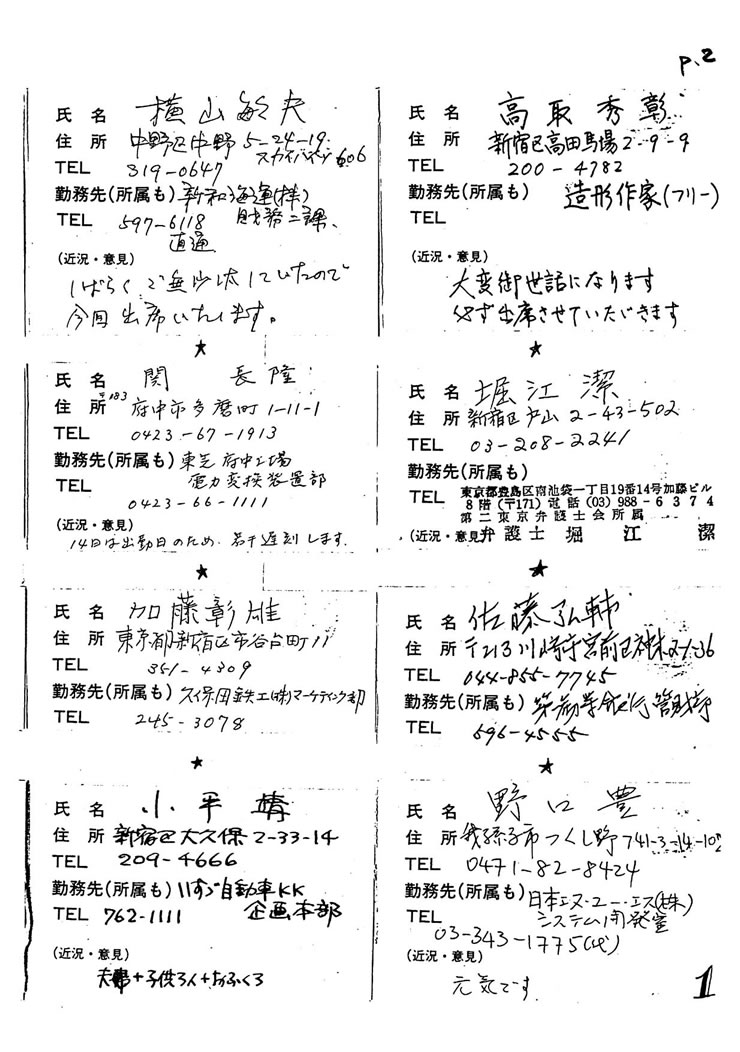 p.2
氏 名 横山敏夫
住 所 中野区中野 5-24-19
スカイハイツ 606
TEL 319-0647
勤務先(所属も) 新和海運(株)
財務二課
TEL 597-6118
直通
(近況・意見)
しばらくご無沙汰していたので
今回出席いたします。
★
氏 名 高取秀彰
住 所 新宿区高田馬場2-9-9
TEL 200-4782
勤務先(所属も) 造形作家(フリー)
TEL
(近況・意見)
大変御世話になります
必ず出席させていただきます
★
氏 名 関 長隆
住 所 〒183 府中市多磨町 1-11-1
TEL 0423-67-1913
勤務先(所属も) 東芝府中工場
電力変換装置部
TEL 0423-66-1111
(近況・意見)
14日は出勤日のため、若干遅刻します.
★
氏 名 堀江 潔
住 所 新宿区戸山 2-43-502
TEL 03-208-2241
勤務先(所属も)
TEL 東京都豊島区南池袋一丁目19番14号加藤ビル
8階(〒171)電話(03)988-6374
第二東京弁護士会所属
(近況・意見) 弁護士 堀 江 潔
★
氏 名 加藤彰雄
住 所 東京都新宿区市谷台町11
TEL 351-4309
勤務先(所属も) 久保田鉄工(株)マーケティング部
TEL 245-3078
★
氏 名 佐藤弘輔
住 所 〒213 川崎市宮前区神木2-1-36
TEL 044-855-7745
勤務先(所属も) 第一勧業銀行管財部
TEL 596-4555
★
氏 名 小平 靖
住 所 新宿区大久保2-33-14
TEL 209-4666
勤務先(所属も) いすゞ自動車KK
企画本部
TEL 762-1111
(近況・意見)
夫婦+子供3人+おふくろ
氏 名 野口 豊
住 所 我孫子市つくし野741-3-14-102
TEL 0471-82-8424
勤務先(所属も) 日本エヌ・ユー・エス(株)
システム開発室
TEL 03-343-1775(代)
(近況・意見)
元気です
1